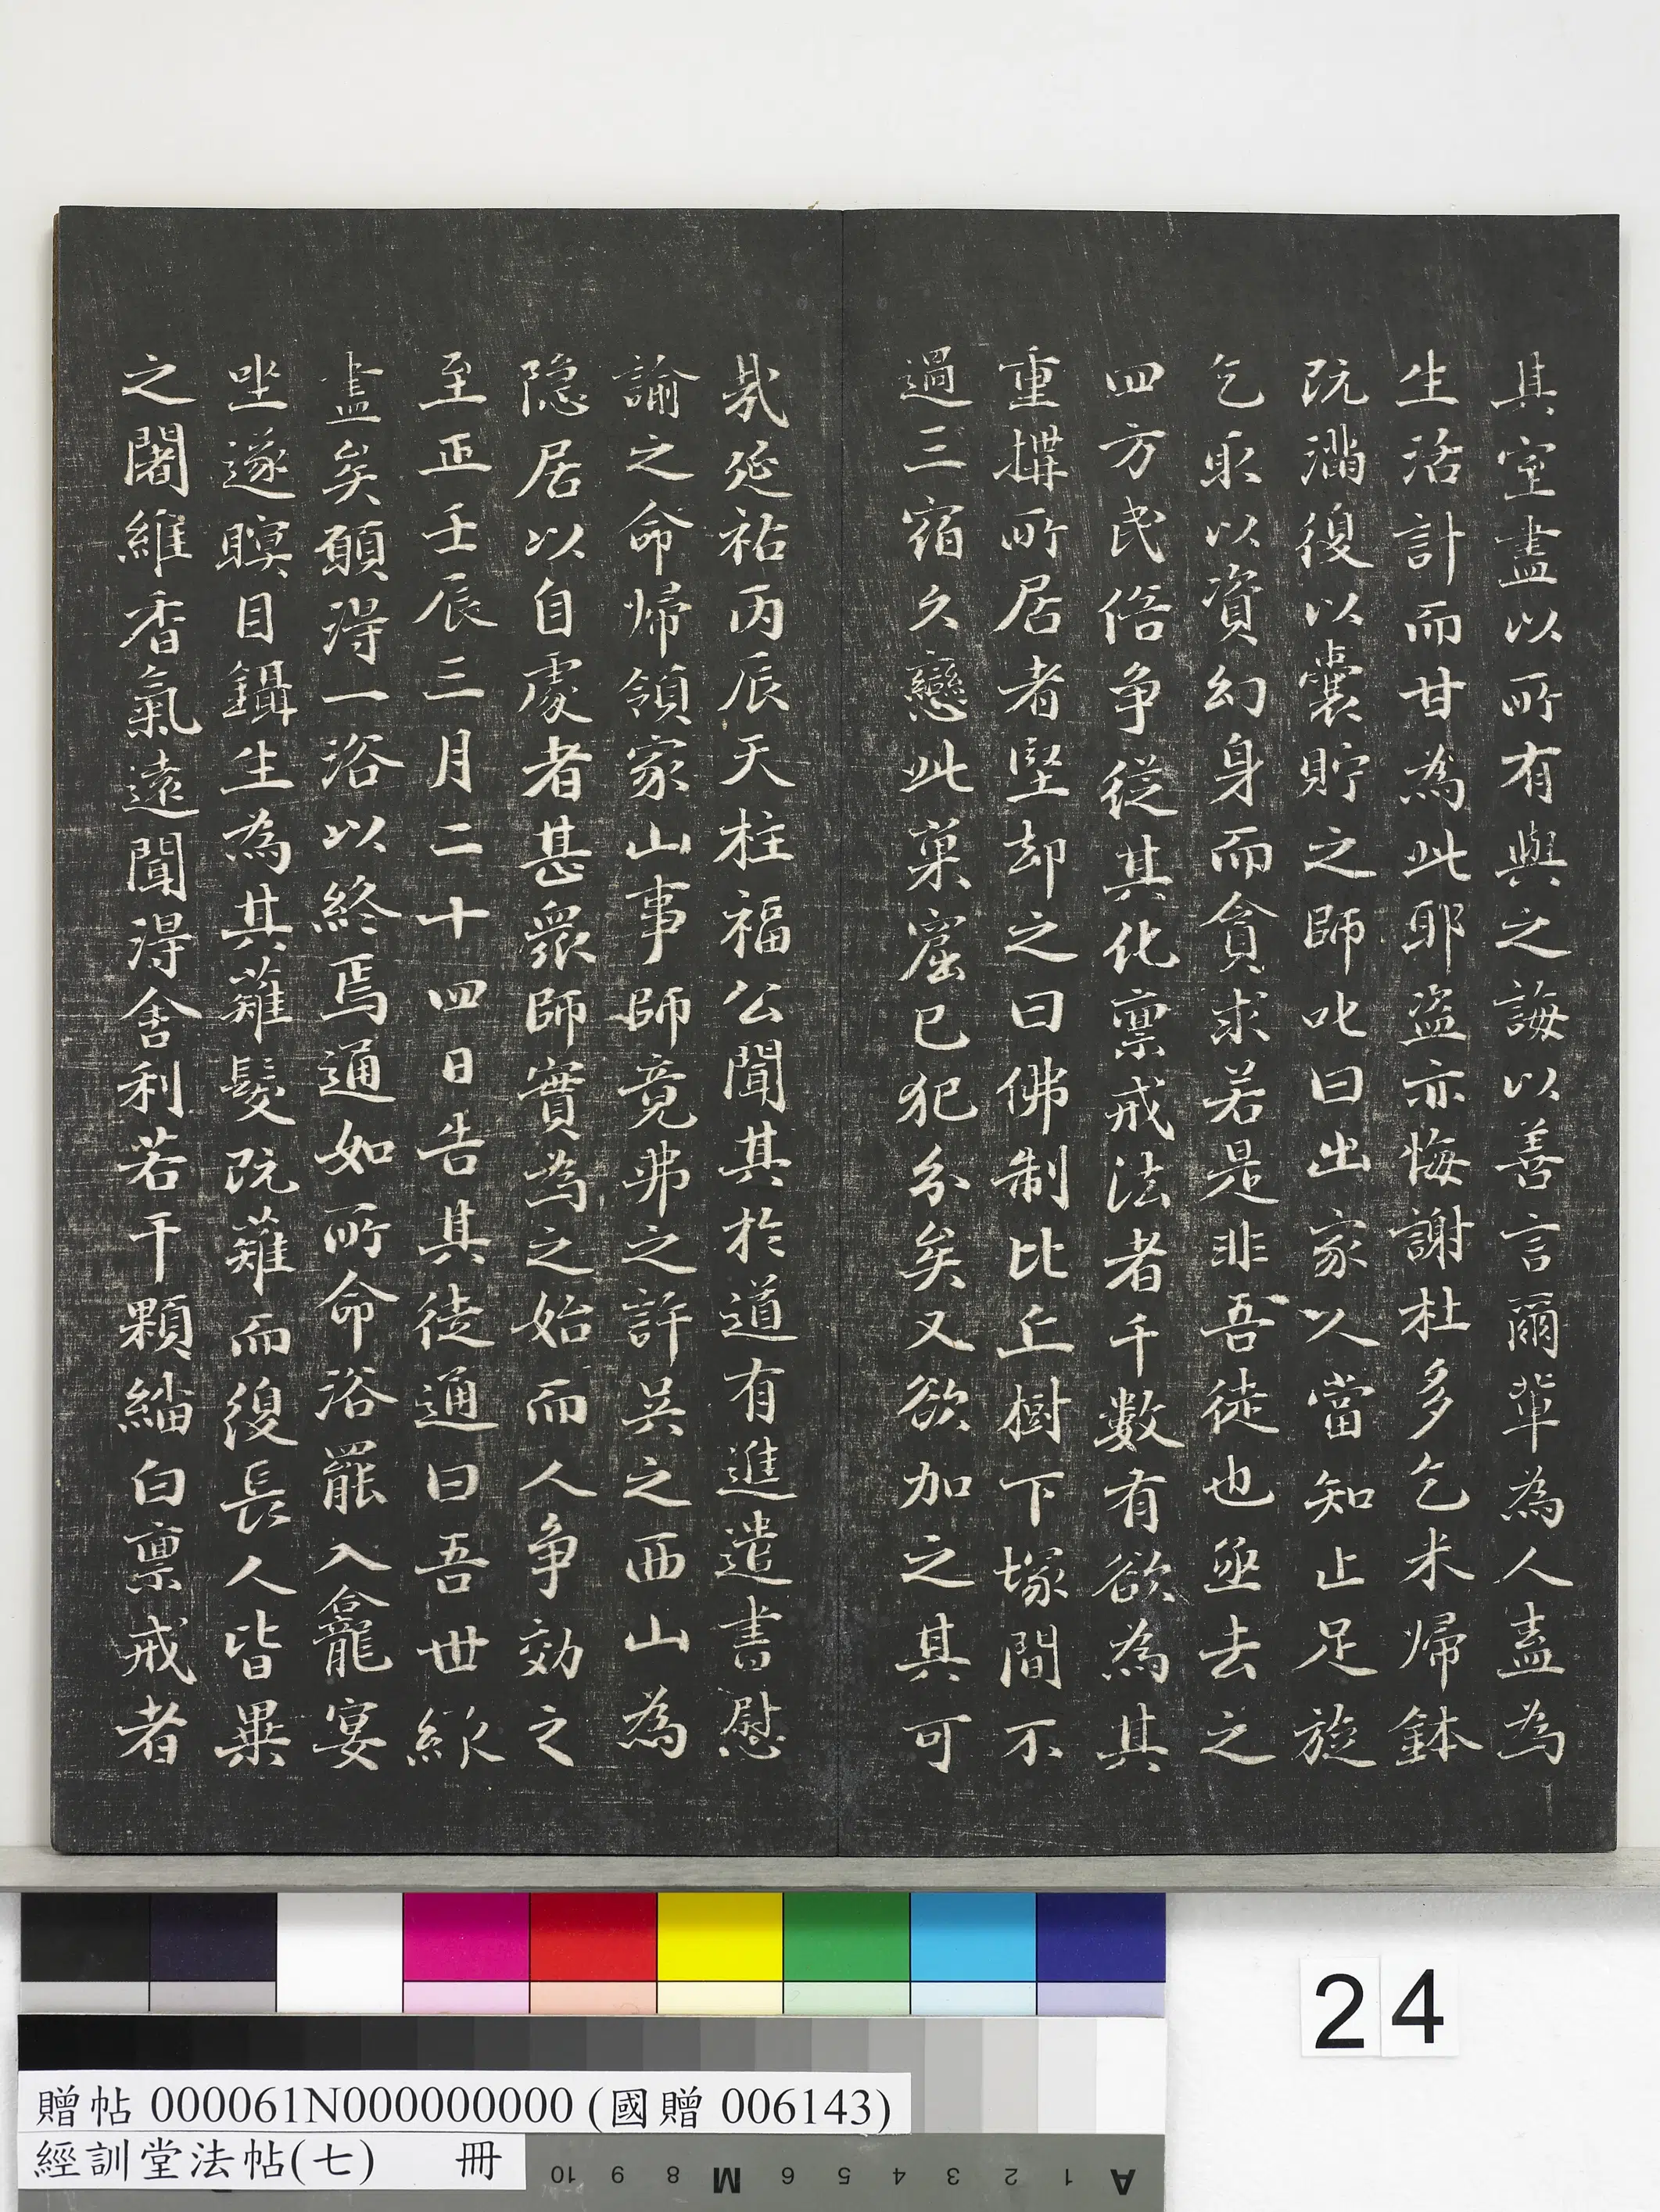 其室盡以所有與之誨以善言爾輩為人盍為
生活計而甘為此耶盜亦悔謝杜多乞米歸鉢
既滿復以囊貯之師叱曰出家人當知止足旋
乞取以資幻身而貪求若是非吾徒也亟去之
四方民俗争從其化禀戒法者千數有欲為其
重搆所居者堅却之曰佛制比丘樹下塚間不
過三宿久戀此巢窟已犯分矣又欲加之其可
㦲延祐丙辰天柱福公聞其於道有進遣書慰
諭之命歸領家山事師竟弗之許吳之西山為
隐居以自處者甚衆師實為之始而人争效之
至正壬辰三月二十四日告其徒通曰吾世緣
盡矣願得一浴以終焉通如所命浴罷入龕宴
坐遂瞑目鑷生為其薙髮既薙而復長人皆異
之闍維香氣遠聞得舍利若干顆緇白禀戒者
24
贈帖 000061N000000000 (國贈 006143)
經訓堂法帖(七) 冊
A 1 2 3 4 5 6 M 8 9 10